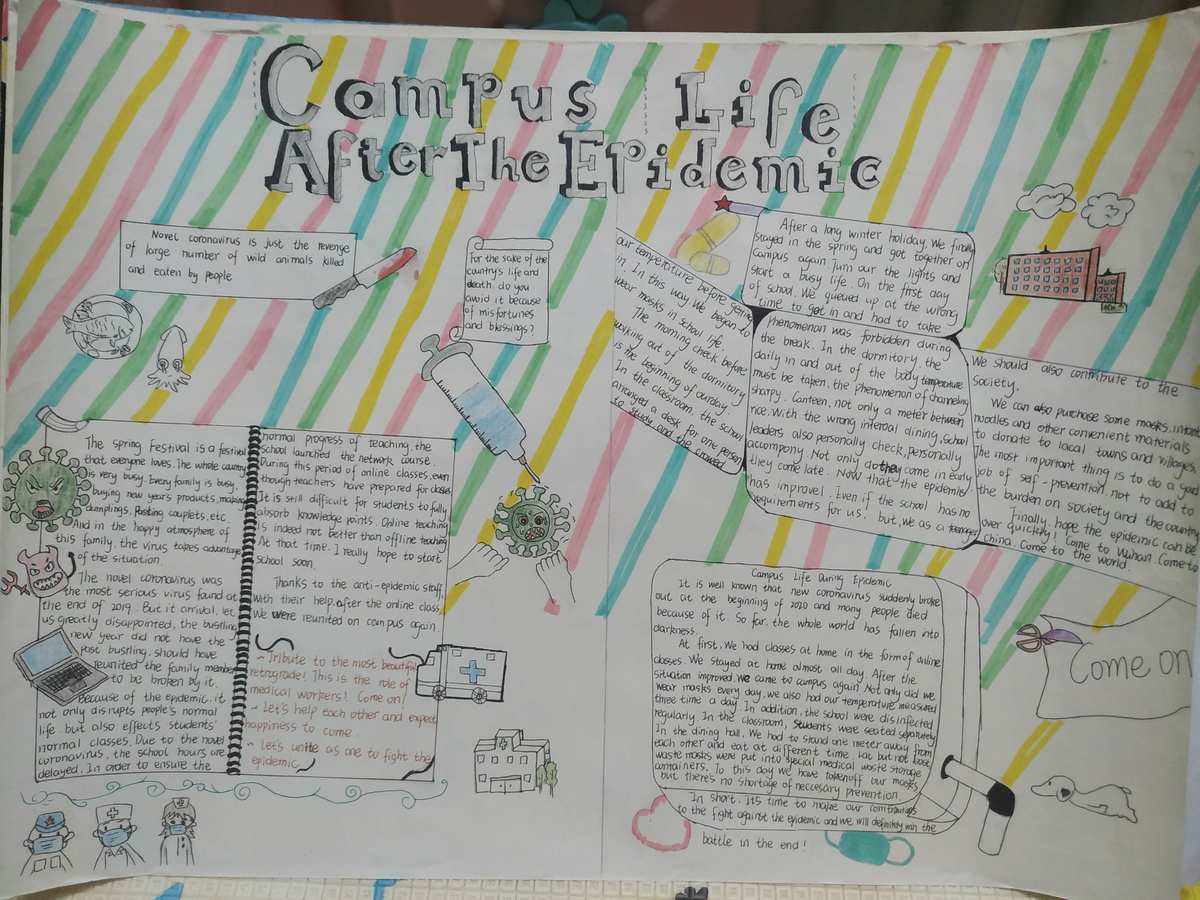 Campus Life
After The Epidemic
Novel coronavirus is just the revenge
of large number of wild animals killed
and eaten by people
For the sake of the
country's life and
death. do you
avoid it because
of misfortunes
and blessings?
The spring Festival is a festival
that everyone loves. The whole country
is very busy. Every family is busy.
buying new year's products, making
dumplings, Pasting couplets, etc.
And in the happy atmosphere of
this family, the virus takes advantage
of the situation.
The novel coronavirus was
the most serious virus found at
the end of 2019. But it arrival, let
us greatly disappointed, the bustling
new year did not have the
past bustling, should have
reunited the family member
to be broken by it.
Because of the epidemic, it
not only disrupts people's normal
life. but also effects students'
normal classes. Due to the novel
coronavirus, the school hours are
delayed. In order to ensure the
normal progress of teaching, the
school launched the network course.
During this period of online classes, even
though teachers have prepared for classes
It is still difficult for students to fully
absorb knowledge points. Online teaching
is indeed not better than offline teaching
At that time. I really hope to start
school soon.
Thanks to the anti-epidemic staff,
with their help, after the online class,
We were reunited on campus again
~ Tribute to the most beautiful
retrograde! This is the role of
medical workers! Come on!
~ Let's help each other and expect
happiness to come.
~ Let's unite as one to fight the
epidemic
After a long winter holiday, We finally
stayed in the spring and got together on
campus again. Turn our the lights and
start a busy life. On the first day
of school. We queued up at the wrong
time to got in and had to take
our temperature before getting
in. In this way. We began to
wear masks in school life.
The morning check before
walking out of the dormitory
is the beginning of ourday.
In the classroom, the school
arranged a desk for one person
to study and the crowed
phenomenon was forbidden during
the break. In the dormitory the
daily in and out of the body temperature
must be taken. the phenomenon of channeling
sharpy. Canteen, not only a meter between
rice. With the wrong interval dining, school
leaders also personally check, personally
accompony. Not only do they come in early
they come late. Now that the epidemic
has improvel. Even if the school has no
requirements for us. but, we as a teenager
We should also contribute to the
society.
We can also purchase some masks, instant
noodles and other convenient materials
to donate to local towns and villages.
The most important thing is to do a good
job of self-prevention, not to add to
the burden on society and the country
Finally, hope the epidemic can be
over quickly! Come to Wuhan. Come to
China. Come to the world.
Campus Life During Epidemic
It is well known that new coronavirus suddenly broke
out at the beginning of 2020 and many people died
because of it. So far. the whole world has fallen into
darkness.
At first. We had classes at home in the form of online
classes. We stayed at home almost all day. After the
situation improved. we came to campus again! Not only did we
wear masks every day. we also had our temperature measured
three time a day. In addition, the school were disinfected
regularly. In the classroom, students were seated separately
In the dining hall. We had to stand one meter away from
each other and eat at different time. Lab but not lose,
waste masks were put into special medical waste storage
containers. To this day we have takenoff our masks
but there's no shortage of neccesary prevention
In short. It's time to make our contributions
to the fight against the epidemic and we will definitely win the
battle in the end!
Come on